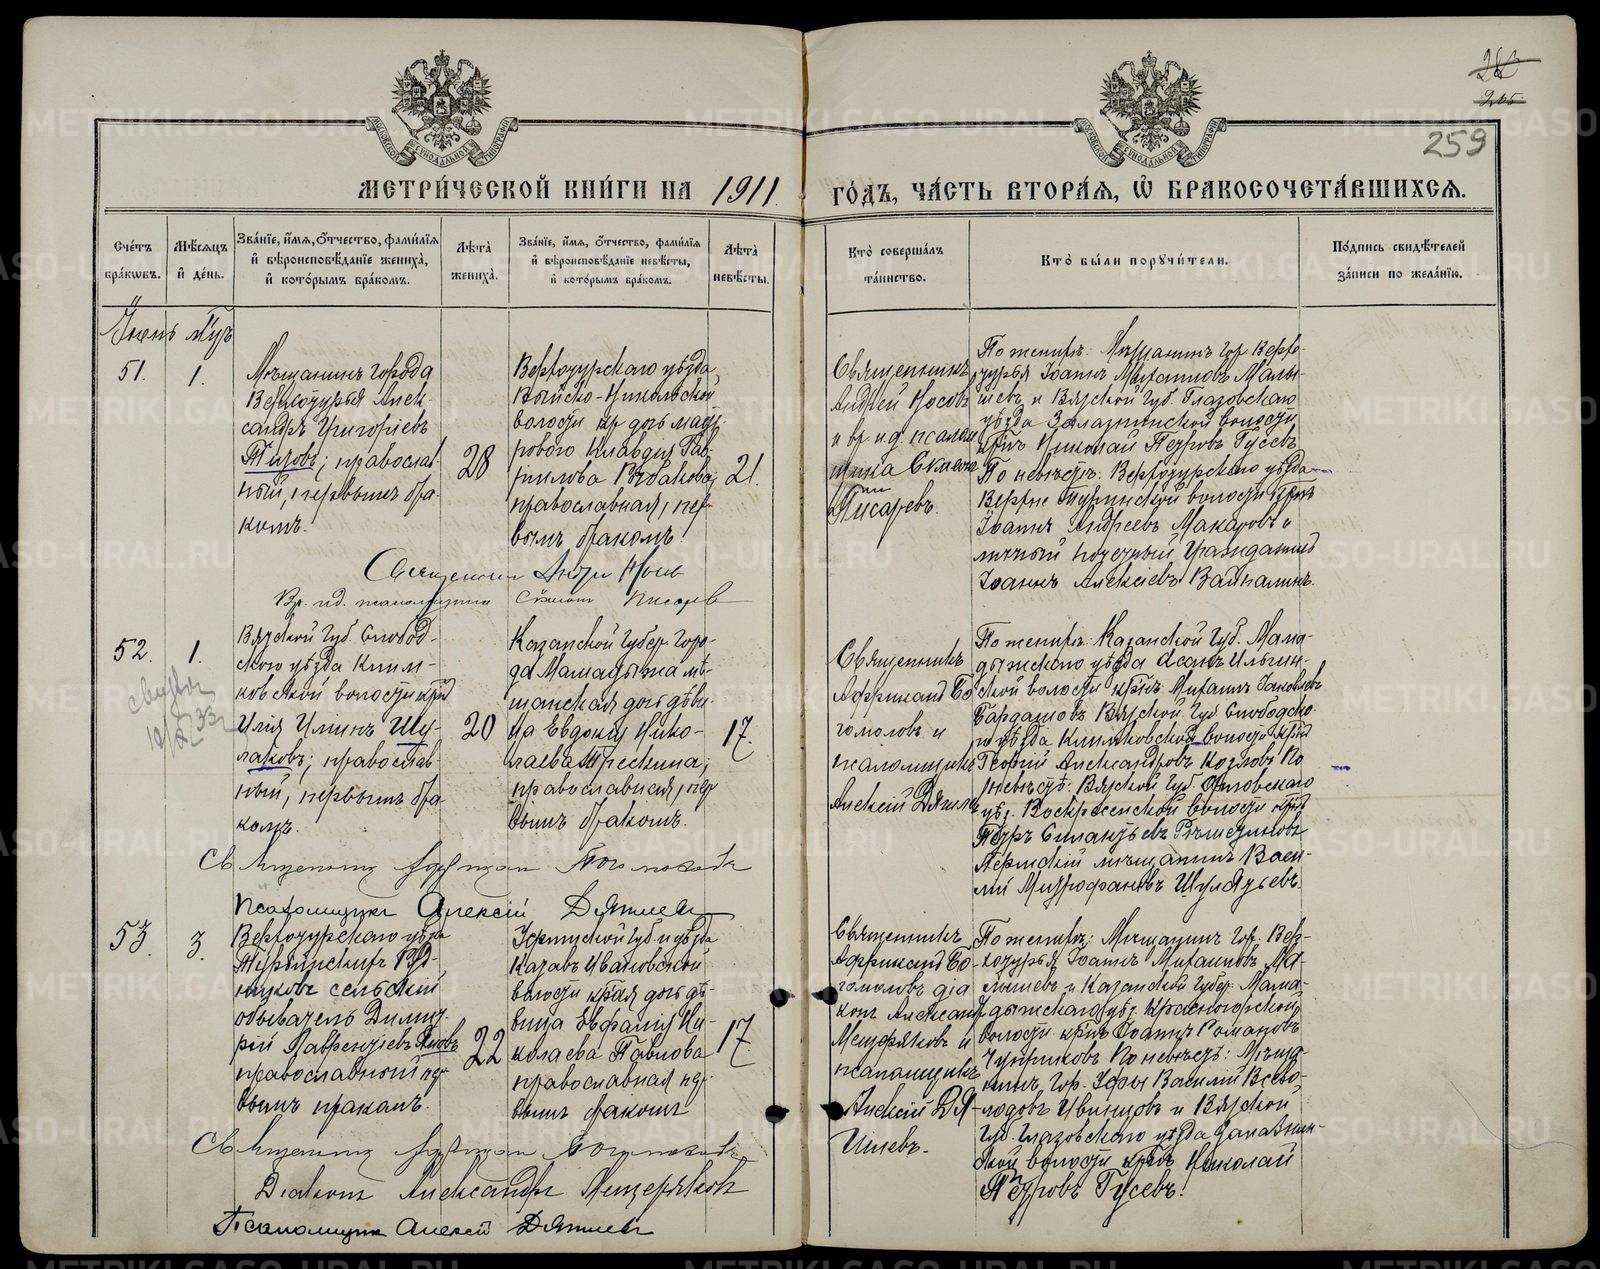 28
265
259
МОСКОВСКОЙ СУНОДАЛЬНОЙ ТИПОГРАФІИ
МОСКОВСКОЙ СУНОДАЛЬНОЙ ТИПОГРАФІИ
МЕТРИ́ЧЕСКОЙ КНИ́ГИ НА 1911 ГО́ДЪ, ЧА́СТЬ ВТОРА́Я, Ѽ БРАКОСОЧЕТА́ВШИХСЯ.
Сче́тъ бра́кѡвъ.
Мѣ́сяцъ и҆ де́нь.
Зва́нїе, и҆́мя, ѻ҆́тчество, фами́лїя и҆ вѣроисповѣ́данїе жениха̀, и҆ кото́рымъ бра́комъ.
Лѣ́та жениха̀.
Зва́нїе, и҆́мя, ѻ҆́тчество, фами́лїя и҆ вѣроисповѣ́данїе невѣ́сты, и҆ кото́рымъ бра́комъ.
Лѣ́та невѣ́сты.
Кто̀ соверша́лъ та́инство.
Кто̀ бы́ли порꙋчи́тели.
По́дпись свидѣ́телей за́писи по жела́нїю.
51.
1.
Мѣщанинъ города
Верхотурья Алек-
сандръ Григоріевъ
Титовъ; православ-
ный, первымъ бра-
комъ.
28
Верхотурскаго уѣзда,
волости кр. дочь
Клавдія Гав-
рилова
православная, пер-
вымъ бракомъ.
21.
Священникъ
Андрей Носовъ
и вр. и. д. псалом-
щика
Писаревъ.
По женихѣ: Мѣщанинъ гор. Верхо-
турья Іоаннъ Михаиловъ Малы-
шевъ и Вятской губ. Глазовскаго
уѣзда волости
кр-нъ Николай Петровъ Гусевъ
По невѣстѣ: Верхотурскаго уѣзда
Верхне Туринской волости кр-нъ
Іоаннъ Андреевъ Макаровъ и
личный почетный гражданинъ
Іоаннъ Алексіевъ
Священникъ Андрей Носовъ
Вр. и. д. псаломщика Писарев
52.
1.
Вятской губ. Слобод-
скаго уѣзда Клим-
ковской волости кр-нъ
Илія Илиинъ Шу-
лаковъ; православ-
ный, первымъ бра-
комъ.
20
Казанской губер. горо-
да Мамадыша мѣ-
щанская дочь дѣви-
ца Евдокія Нико-
лаева Трескина,
православная, пер-
вымъ бракомъ.
17.
Священникъ
Африканъ Бо-
гомоловъ и
псаломщикъ
Алексій Дягилевъ
По женихѣ: Казанской губ. Мама-
дышскаго уѣзда
ской волости кр-нъ Михаилъ Іаковлевъ
Бардашовъ Вятской губ. Слободско-
го уѣзда Климковской волости кр-нъ
Георгій Александровъ Козловъ По
невѣстѣ: Вятской губ. Орловскаго
уѣз. Воскресенской волости кр-нъ
Петръ
Пермскій мѣщанинъ Васи-
лій Митрофановъ
Священникъ Африкан Богомоловъ
Псаломщикъ Алексій Дягилевъ
53.
3.
Верхотурскаго уѣзда
сельскій
обыватель Дмит-
рій Лаврентіевъ
православный, пер-
вымъ бракомъ.
22
Уфимской губ. и уѣзда
волости кр-ая дочь дѣ-
вица Евфалія Ни-
колаева Павлова
православная пер-
вымъ бракомъ
17.
Священникъ
Африканъ Бо-
гомоловъ діа-
конъ Александръ
Мещеряковъ и
псаломщикъ
Алексій Дя-
гилевъ.
По женихѣ: Мѣщанинъ гор. Вер-
хотурья Іоаннъ Михаиловъ Ма-
лышевъ и Казанской губер. Мама-
дышскаго уѣз. Красногорской
волости кр-нъ Іоаннъ Романовъ
По невѣстѣ: Мѣща-
нинъ гор. Уфы Василій Всево-
лодовъ и Вятской
губ. Глазовскаго уѣзда
ской волости кр-нъ Николай
Петровъ Гусевъ!
Священникъ Африкан Богомоловъ
Діаконъ Александръ Мещеряковъ
Псаломщикъ Алексѣй Дягилевъ
METRIKI.GASO-URAL.RU